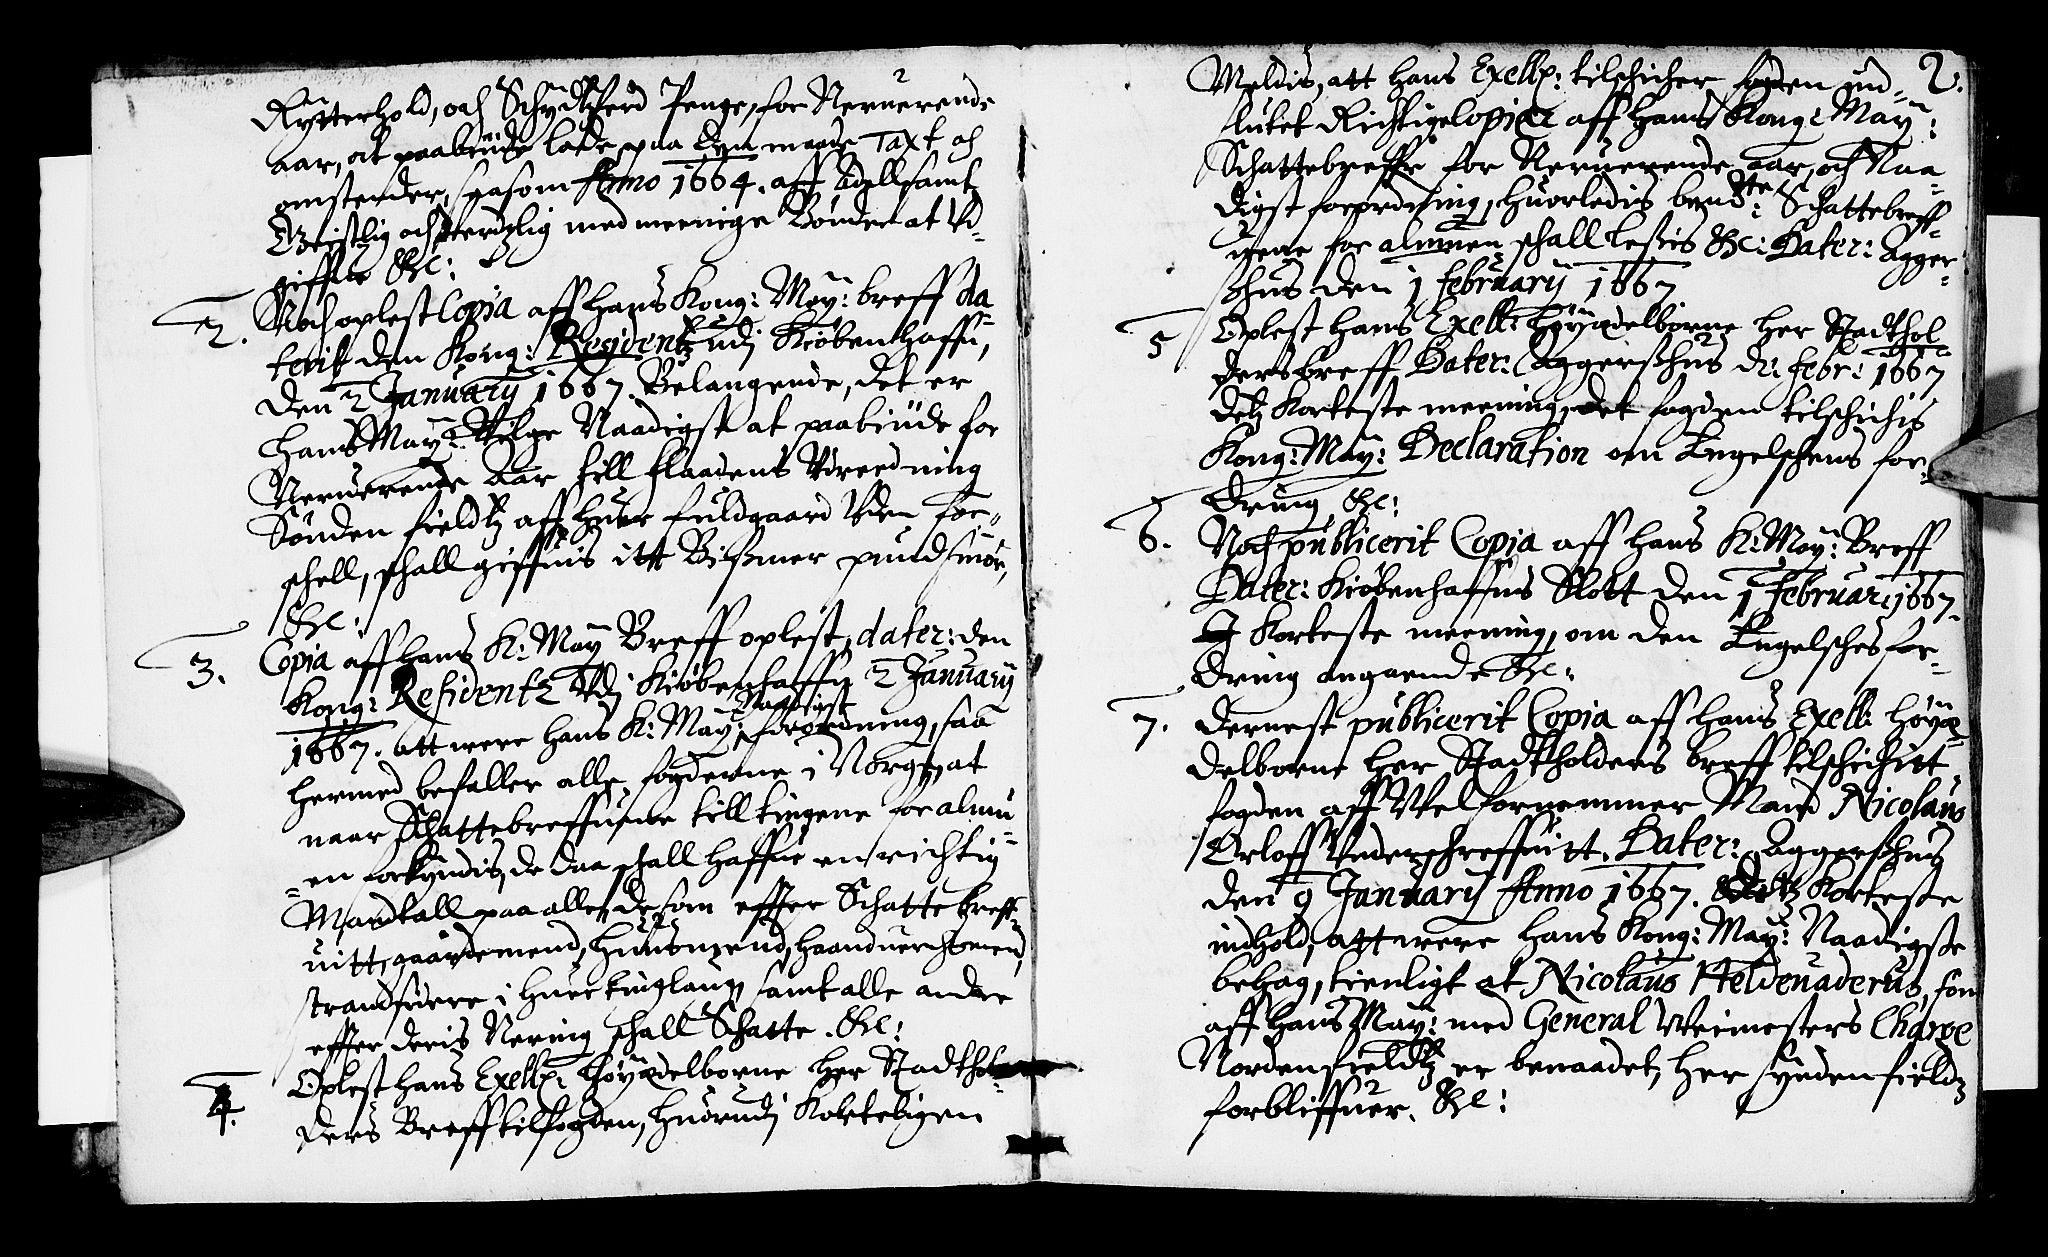 Rytterhold, och Schydtzferd Penge, for Neruerende
aar, at paabiude lade, paa dyn maade Taxt och
omstender, saasom Anno 1664. aff Adell samt
Geistlig och Werdzlig med meenige Bønder at Vd-
giffue &c:
2. Noch oplest Copia aff hans Kong: May: breff da-
terit den Kong: Residentz udj Kiøbenhaffn,
den 2 January 1667. Belangende, det er
hans May: Wilge Naadigst at paabiude for
Neruerende Aar till flaadens Vdreedning
Sønden fieldtz aff huer fuldgaard Vden for-
schell, schall giffuis itt Bissmer pund smør,
&c:
3. Copia aff hans K: May Breff oplest, dater: den
Kong: Residentz Vdj Kiøbenhaffn 2 January
1667. att were hans K: May Naadigst forordning, saa
hermed befaller alle fogderne i Norge, at
naar Schattebreffuene till tingene for almu-
-en forkyndis, de daa schall haffue en richtig
Mandtall paa alle de som effter Schattebreff-
uitt, gaardemend, huusmend, haanduerchsmend,
strandsidere i huer tinglaug, samt alle andre
effter deris Nering schall Schatte. &c:
4. Oplest hans Exellz: høyædelborne her Stadthol-
ders Breff til fogden, huorudj Korteligen
2.
Meldis, att hans Exellz: tilschicher fogden ind-
slutet Richtige Copier aff hans Kong: May:
Schattebreffe for Neruerende aar, och Naa-
digst forordning, huorledis bemdte: Schattebreff-
uene for almuen schall lesis &c: Dater: Agger-
shus den 1 february 1667
5 Oplest hans Exell: høyædelborne her Stadthol-
ders breff Dater: Aggershus d: febr: 1667
detz Korteste meening, det fogden tilschichis
Kong: May: Declaration om Engelschens for-
dring &c:
6. Noch publicerit Copia aff hans K: May: Breff
Dater: Kiøbenhaffns Slott den 1 februar: 1667.
I Korteste meening, om den Engelsches for-
dring angaaende &c:
7. Dernest publicerit Copia aff hans Exell: høyæ-
delborne her Stadtholders breff tilschichitt
fogden aff Velfornemmer Mand Nicolaus
Orloff Vnderschreffuitt. Dater: Aggershus
den 9 January Anno 1667. detz Korteste
indhold, att were hans Kong: May: Naadigste
behag, tienligt at Nicolaus Heldeuaderus, som
aff hans May: med General Veimesters Charge
Nordenfieldtz er benaadet, her syndenfieldz
forbliffuer. &c: